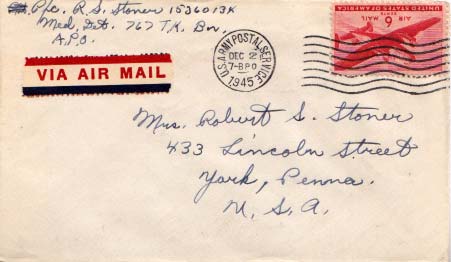 Pfc. R. S. Stoner 1536013K
Med. Det. 767 T.K. Bn.
A.P.O.
VIA AIR MAIL
U.S. ARMY POSTAL SERVICE
DEC 2
7-BPO
1945
UNITED STATES OF AMERICA
AIR MAIL
6
Mrs. Robert S. Stoner
433 Lincoln Street
York, Penna.
U. S. A.